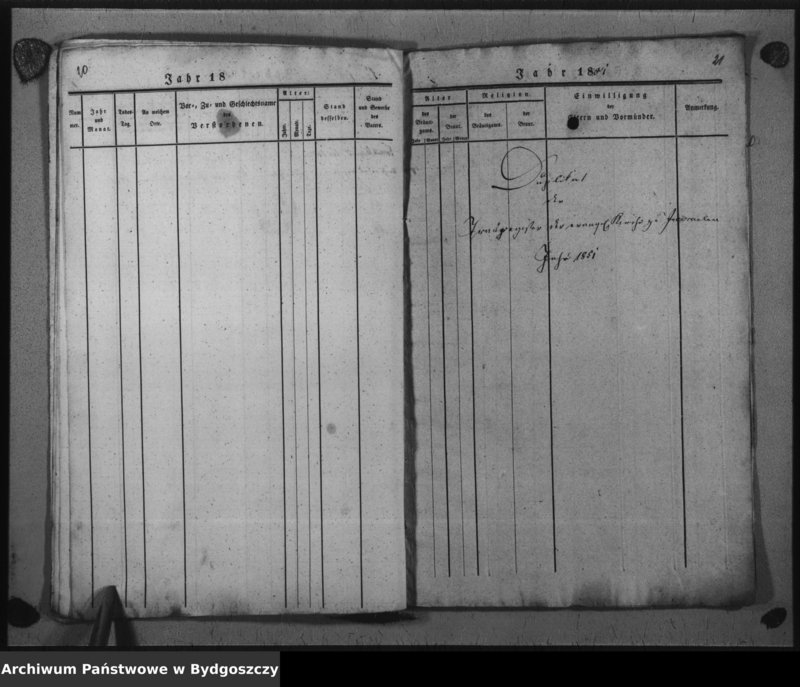 20
Jahr 18
Num
mer.
Jahr
und
Monat.
Todes-
Tag.
An welchem
Orte.
Vor-, Zu- und Geschlechtsname
des
Verstorbenen.
Alter:
Jahr.
Monat.
Tage.
Stand
desselben.
Stand
und Gewerbe
des
Vaters.
21
Jahr 1851
Alter
des
Bräuti-
gams.
der
Braut.
Religion.
des
Bräutigams.
der
Braut.
Einwilligung
der
Eltern und Vormünder.
Anmerkung.
Duplikat
der
Trauregister der evangel. Kirche zu
Jahr 1851
Archiwum Państwowe w Bydgoszczy